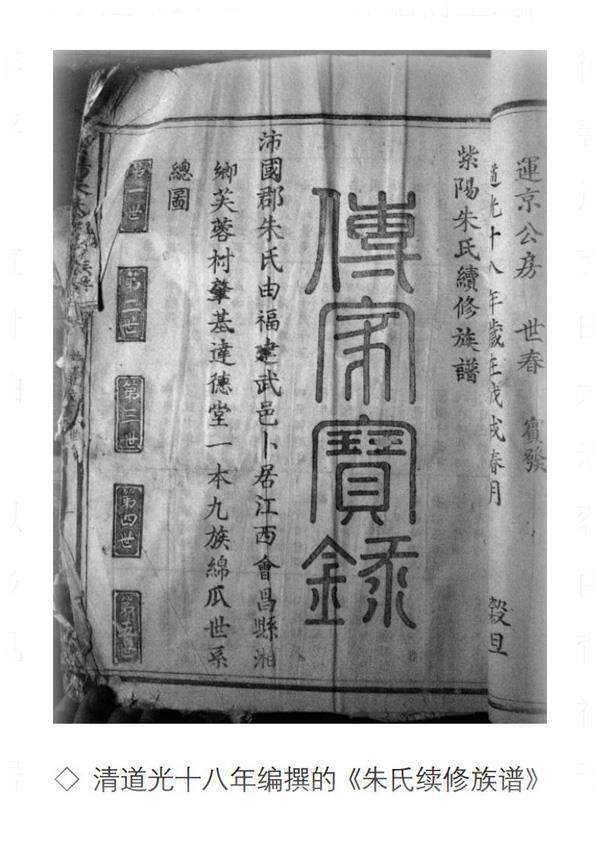 運京公房　世春　寅發
道光十八年歲在戊戌春月　穀旦
紫陽朱氏續修族譜
傳家寶錄
沛國郡朱氏由福建武邑卜居江西會昌縣湘
鄉芙蓉村肇基達德堂一本九族綿瓜世系
總圖
第一世
第二世
第三世
第四世
第五世
◇ 清道光十八年编撰的《朱氏续修族谱》